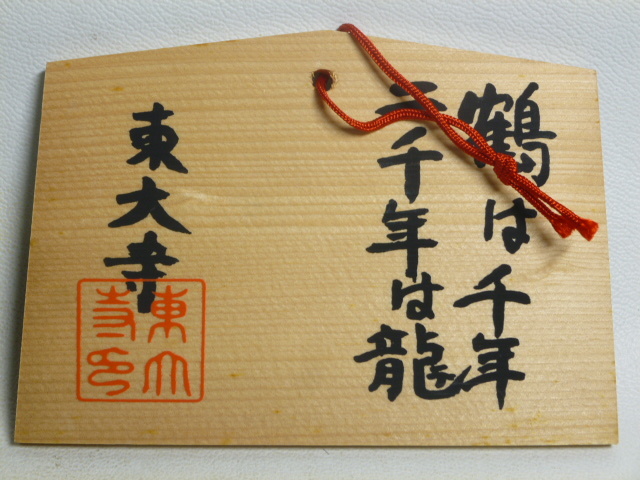 鶴は千年
二千年は龍
東大寺
東大
寺印